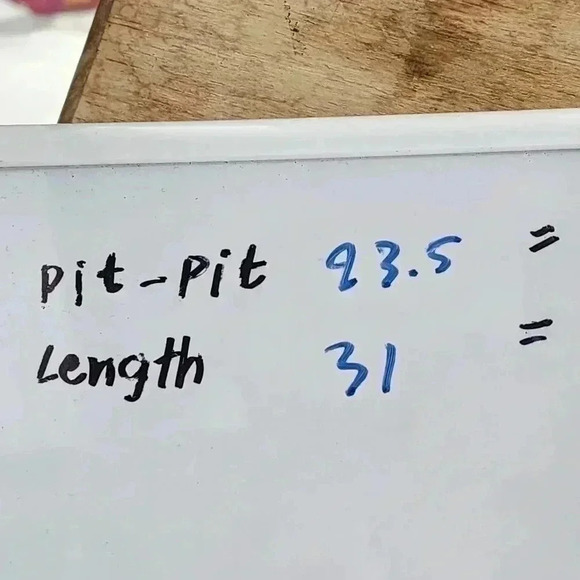 Pit-Pit 23.5 =
Length 31 =